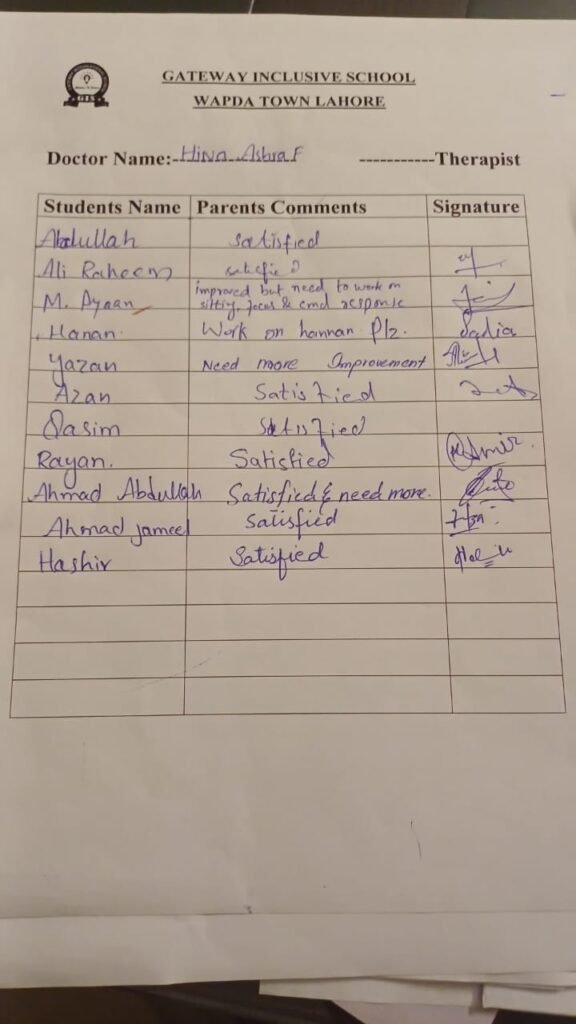 GATEWAY INCLUSIVE SCHOOL
WAPDA TOWN LAHORE
Doctor Name:- Hina Ashraf -----------Therapist
Students Name Parents Comments Signature
Abdullah satisfied
Ali Raheem satisfied
M. Ayaan improved but need to work on
sitting, focus & cmd response
Hanan. Work on hannan Plz. Sadia
Yazan Need more Improvement
Azan Satisfied
Qasim Satisfied
Rayan. Satisfied Amir.
Ahmad Abdullah Satisfied & need more.
Ahmad jameel satisfied
Hashir Satisfied